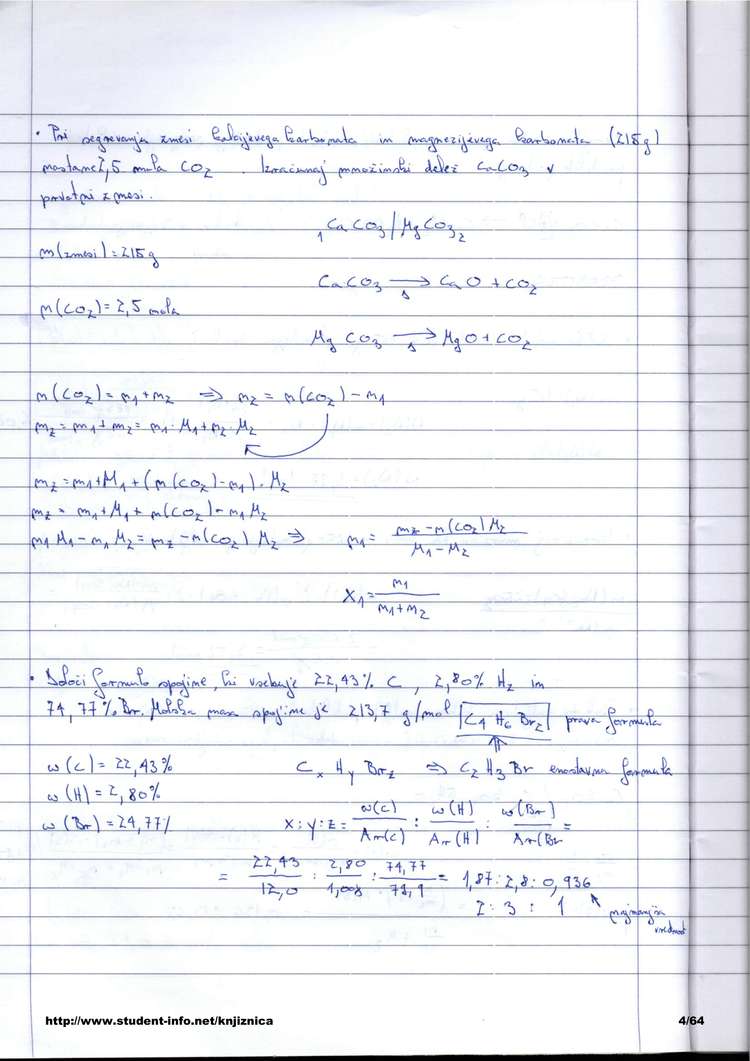 • Pri segrevanju zmesi kalcijevega karbonata in magnezijevega karbonata (215g)
nastane 2,5 mola CO2. Izračunaj množinski delež CaCO3 v
prvotni zmesi.
1 CaCO3/MgCO3 2
m(zmesi)=215g
CaCO3 →Δ CaO + CO2
n(CO2)=2,5 mola
MgCO3 →Δ MgO + CO2
n(CO2)=n1+n2 ⇒ n2 = n(CO2) - n1
mz = m1+m2 = n1·M1+n2·M2
mz = n1+M1+(n(CO2)-n1)·M2
mz = n1+M1+n(CO2)-n1M2
n1M1-n1M2=mz-n(CO2)M2 ⇒ n1= mz-n(CO2)M2 / M1-M2
X1= n1 / n1+n2
• Določi formulo spojine, ki vsebuje 22,43% C, 2,80% H2 in
74,77% Br. Molska masa spojine je 213,7 g/mol C4H6Br2 prava formula
w(C)=22,43% CxHyBrz ⇒ C2H3Br enostavna formula
w(H)=2,80%
w(Br)=24,77% x:y:z= w(C)/Ar(C) : w(H)/Ar(H) : w(Br)/Ar(Br =
= 22,43/12,0 : 2,80/1,008 : 74,77/79,9 = 1,87:2,8:0,936
2:3:1 najmanjša
vrednost
http://www.student-info.net/knjiznica 4/64